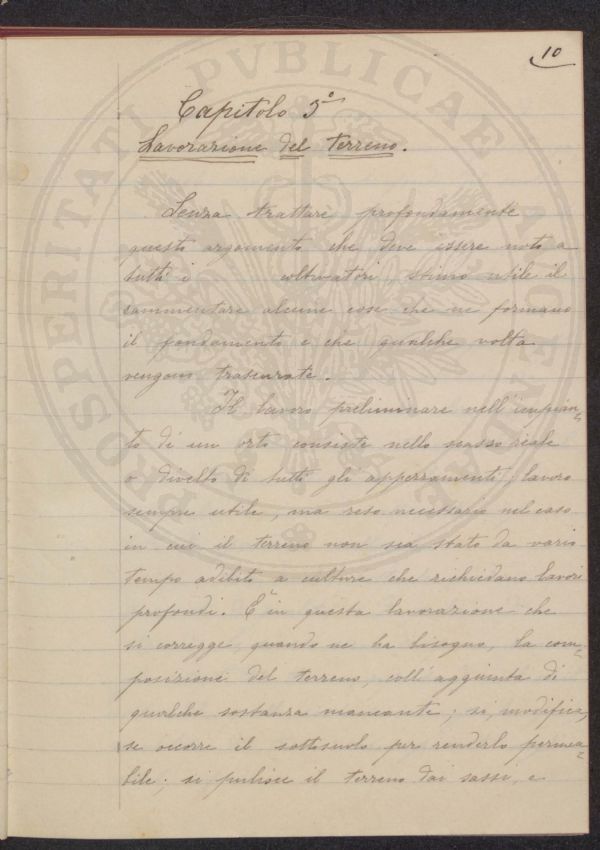 10
Capitolo 3°
Lavorazione del terreno.
Senza trattare profondamente
questo argomento che deve essere noto a
tutti i coltivatori, stimo utile il
rammentare alcune cose che ne formano
il fondamento e che qualche volta
vengono trascurate.
Il lavoro preliminare nell'impian-
to di un orto consiste nello scasso reale
o divelto di tutti gli appezzamenti; lavoro
sempre utile, ma reso necessario nel caso
in cui il terreno non sia stato da vario
tempo adibito a culture che richiedano lavori
profondi. È in questa lavorazione che
si corregge, quando ne ha bisogno, la com-
posizione del terreno, coll'aggiunta di
qualche sostanza mancante; si modifica,
se occorre il sottosuolo per renderlo permea-
bile; si pulisce il terreno dai sassi, e
PROSPERITATI PVBLICAE AVGENDAE